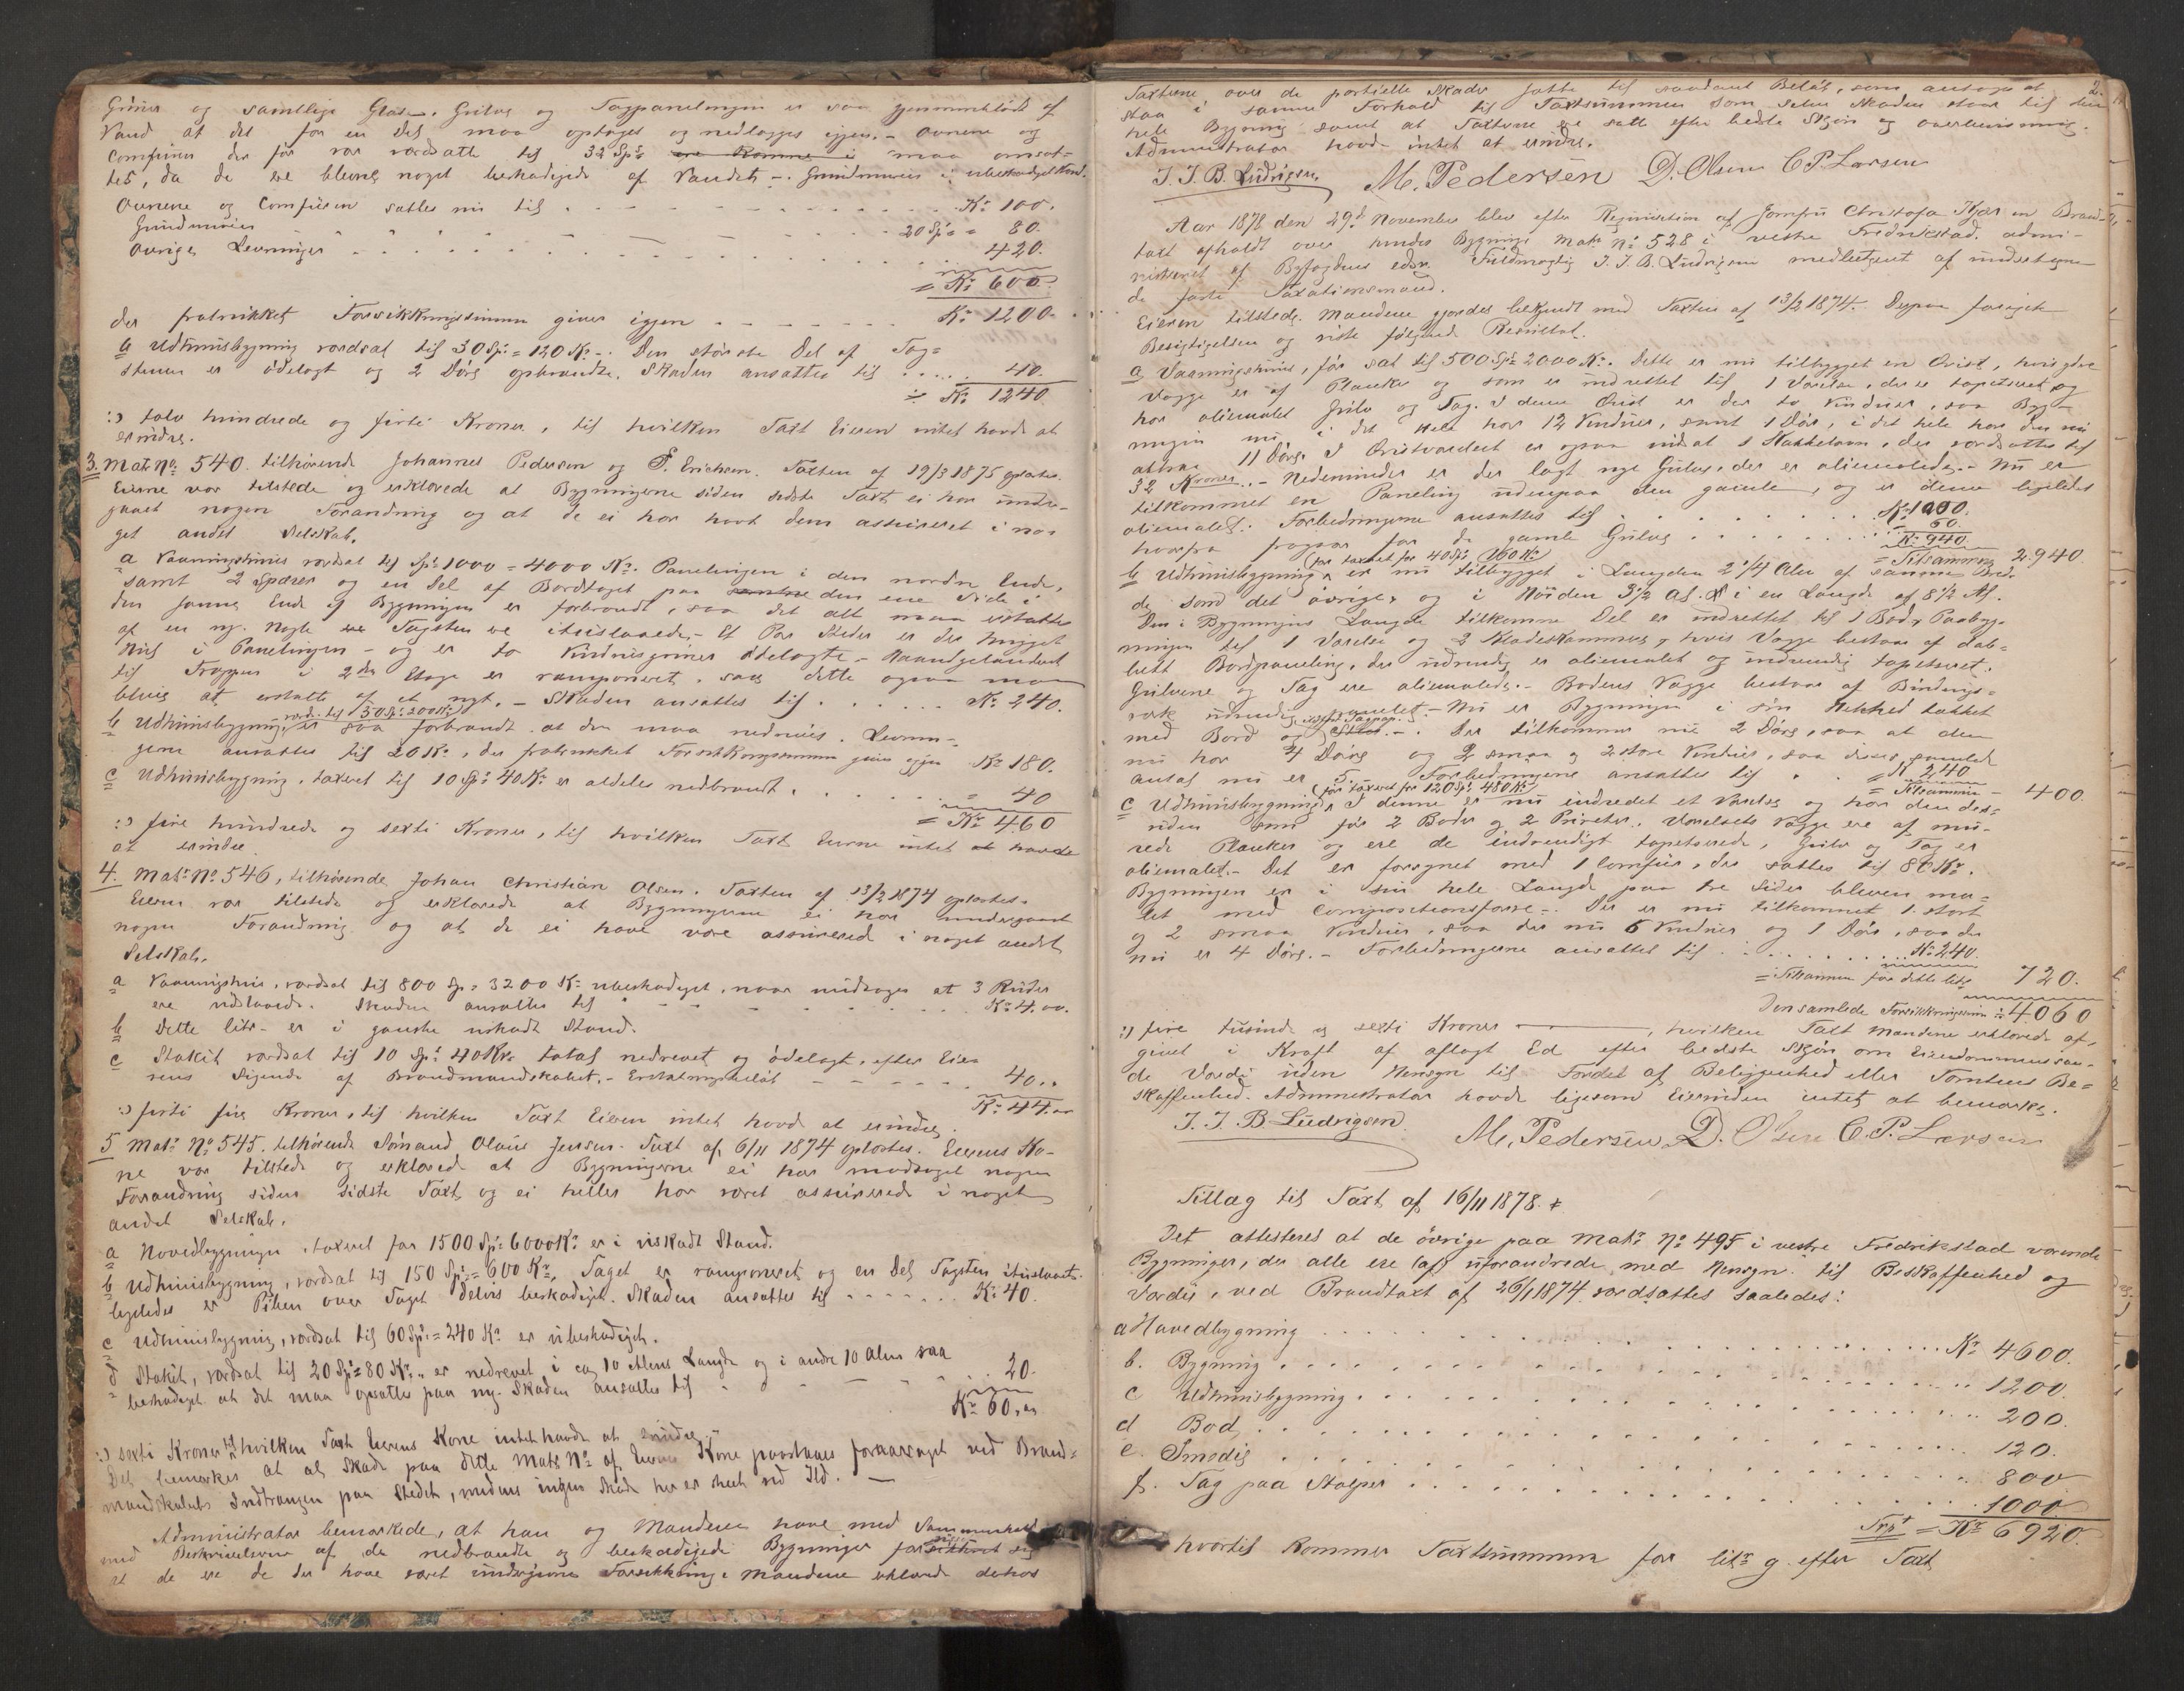 Gruer og samtlige Glas. Gulve og Tagpanelingen er saa gjennemblödt af
Vand at det for en Del maa optages og nedlægges igjen. - Ovnene og
Comfuren der för var værdsatte til 32 Spd. ere komne i maa omsæt-
tes, da de ere blevne noget beskadigede af Vandet. - Grundmuren i ubeskadiget Stand.
Ovnene og Comfuren sættes nu til . . . Kr. 100.
Grundmuren . . . 20 Spd. = 80.
Övrige Levninger . . . 420.
= Kr. 600
der fratrukket Forsikkringssummen giver igjen . . . Kr. 1200.
b Udhuusbygning værdsat til 30 Spd. = 120 Kr. - Den störste Del af Tag-
stenen er ödelagt og 2 Döre opbrændte. Skaden ansættes til . . . 40.
= Kr. 1240.
:) tolv hundrede og firti Kroner, til hvilken Taxt Eieren intet havde at
erindre.
3. Matr. No. 540. tilhörende Johannes Pedersen og P. Erichsen. Taxten af 19/3 1875 oplæstes.
Eierne var tilstede og erklærede at Bygningerne siden sidste Taxt ei har under-
gaaet nogen Forandring og at de ei har havt dem assureret i no-
get andet Selskab.
a Vaaningshuus værdsat til Spd. 1000 = 4000 Kr. Panelingen i den nordre Ende,
samt 2 Spærer og en Del af Bordtaget paa samme den ene Side i
den samme Ende af Bygningen er forbrændt, saa det alt maa erstattes
af en ny. Nogle ere Tagsten ere itusslaaede. - Et Par Steder er der hugget
Hul i Panelingen - og er to Vinduesgruer ödelagte. - Haandgelænderet
til Trappen i 2den Etage er ramponeret, saa dette ogsaa maa
blive at erstatte af et nyt. - Skaden ansættes til . . . Kr. 240.
b Udhuusbygning, værds. til 50 Spd. 200 Kr. er saa forbrændt at den maa nedrives. Levnin-
gerne ansættes til 20 Kr., der fratrukket Forsikkringssummen giver igjen Kr. 180.
c Udhuusbygning, taxeret til 10 Spd. 40 Kr. er aldeles nedbrændt . . . = 40
= Kr. 460
:) fire hundrede og sexti Kroner, til hvilken Taxt Eierne intet at havde
at erindre.
4. Matr. No. 546, tilhörende Johan Christian Olsen. Taxten af 13/2 1874 oplæstes.
Eieren var tilstede og erklærede at Bygningerne ei har undergaaet
nogen Forandring og at de ei have været assurerede i noget andet
Selskab.
a Vaaningshus, værdsat til 800 Sp. = 3200 Kr. ubeskadiget, naar undtages at 3 Ruder
ere udslaaede. Skaden ansættes til . . . Kr. 4.00.
b Dette litr. er i ganske uskadt Stand.
c Stakit værdsat til 10 Spd. 40 Kr. total nedrevet og ödelagt, efter Eie-
rens Sigende af Brandmandskabet. - Erstatningsbelöb . . . 40..
Kr. 44..
:) firti fire Kroner, til hvilken Taxt Eieren intet havde at erindre.
5 Matr. No. 545. tilhörende Sömand Olaus Jensen. Taxt af 6/11 1874 oplæstes. Eierens Ko-
ne var tilstede og erklærede at Bygningerne ei har modtaget nogen
Forandring siden sidste Taxt, og ei heller har været assurerede i noget
andet Selskab.
a Hovedbygningen, taxeret for 1500 Spd. 6000 Kr. er i uskadt Stand.
b Udhuusbygning, værdsat til 150 Spd. = 600 Kr. Taget er ramponeret og en Del Tagsten ituslaaet.
ligeledes er Piben over Taget delvis beskadiget. Skaden ansættes til . . . Kr. 40.
c Udhuusbygning, værdsat til 60 Spd. = 240 Kr. er ubeskadiget.
d Stakit, værdsat til 20 Spd. = 80 Kr. er nedrevet i ca 10 Alens Længde og i andre 10 Alen saa
beskadiget at det maa opsættes paa ny. Skaden ansættes til . . . 20.
Kr. 60.
:) sexti Kroner til hvilken Taxt Eierens Kone intet havde at erindre.
Det bemærkes at al Skade paa dette Matr. No. af Eierens Kone paastaaes foraarsaget ved Brand-
mandskabets Indtrængen paa Stedet, medens ingen Skade her er skeet ved Ild. -
Administrator bemærkede, at han og Mændene have med Sammenhold
med Beskrivelserne af de nedbrændte og beskadigede Bygninger forsikkret sig
at de ere de der have været undergivne Forsikkring. Mændene erklærede derhos
Taxterne over de partielle Skader satte til saadant Belöb, som antages at
staa i samme Forhold til Taxtsummen som selve Skaden staar til den
hele Bygning samt at Taxterne ere satte efter bedste Skjön og overbeviisning.
Administrator havde intet at erindre.
J. J. B. Ludvigsen. M. Pedersen D. Olsen C. P. Larsen
Aar 1878 den 29de November blev efter Requisition af Jomfru Christofa Kjær en Brand-
taxt afholdt over hendes Bygninger Matr. No. 528 i vestre Fredrikstad. admi-
nistreret af Byfogdens edsv. Fuldmægtig J. J. B. Ludvigsen medbetjent af undertegne-
de faste Taxationsmænd.
Eieren tilstede. Mændene gjordes bekjendt med Taxten af 13/2 1874. Derpaa foregik
Besigtigelsen og viste fölgende Resultat.
a Vaaningshuus, för sat til 500 Spd. 2000 Kr. Dette er nu tilbygget en Qvist, hvis ydre
Vægge er af Planker og som er indrettet til 1 Værelse, der er tapetseret og
har oliemalet Gulv og Tag. I denne Qvist er der to Vinduer, saa Byg-
ningen nu i det Hele har 12 Vinduer, samt 1 Dör, i det hele har den nu
altsaa 11 Döre. I Qvistværelset er ogsaa indsat 1 Kakkelovn, der værdsættes til
32 Kroner. - Nedenunder er der lagt nye Gulve, der er oliemalede. - Nu er
tilkommet en Paneling udenpaa den gamle, og er denne ligeledes
oliemalet. Forbedringerne ansættes til . . . Kr. 1000.
hvorfra fragaar for de gamle Gulve . . . 60.
Kr. 940
= Tilsammen 2940.
b Udhuusbygning, (för taxeret for 40 Spd. 160 Kr.) er nu tilbygget i Længden 2 1/4 Alen af samme Bred-
de som det övrige, og i Höiden 3 1/2 Al. i en Længde af 8 1/2 Al.
Den i Bygningens Længde tilkomne Del er indrettet til 1 Bod, Paabyg-
ningen til 1 Værelse og 2 Klædeskammere, hvis Vægge bestaar af dob-
belt Bordpaneling, der udvendig er oliemalet og indvendig tapetseret.
Gulvene og Tag ere oliemalede. - Bodens Vægge bestaar af Bindings-
værk udvendig panelet. - Nu er Bygningen i sin Helhed tækket
med Bord og Tagpap. - Der tilkommer nu 2 Döre, saa at den
nu har 4 Döre og 2 smaa og 2 store Vinduer, saa disses samlede
antal nu er 5. Forbedringerne ansættes til . . . = Kr. 240
= Tilsammen - 400.
c Udhuusbygning, (för taxeret for 120 Spd. 480 Kr.) I denne er nu indredet et Værelse og har den des-
uden som för 2 Boder og 2 Priveter. Værelsets Vægge ere af mu-
rede Planker og ere de indvendigt tapetserede, Gulv og Tag er
oliemalet. - Det er forsynet med 1 Comfur, der sættes til 80 Kr.
Bygningen er i sin hele Længde paa tre Sider bleven ma-
let med Compositionsfarve. - Der er nu tilkommet 1 stort
og 2 smaa Vinduer, saa der nu 6 Vinduer og 1 Dör, saa der
nu er 4 Döre. - Forbedringerne ansættes til . . . Kr. 240.
= Tilsammen for dette litr. 720.
Den samlede Forsikkringssum = 4060
:) fire tusinde og sexti Kroner ———, hvilken Taxt Mændene erklærede af-
givet i Kraft af aflagt Ed efter bedste Skjön om Eiendommens san-
de Værdi uden Hensyn til Fordel af Beliggenhed eller Tomtens Be-
skaffenhed. Administrator havde ligesom Eierinden intet at bemærke.
J. J. B. Ludvigsen. M. Pedersen D. Olsen C. P. Larsen
Tillæg til Taxt af 16/11 1878.
Det attesteres at de övrige paa Matr. No. 495 i vestre Fredrikstad værende
Bygninger, der alle ere (af) uforandrede med Hensyn til Beskaffenhed og
Værdi, ved Brandtaxt af 26/1 1874 værdsattes saaledes:
a Hovedbygning . . . Kr. 4600.
b. Bygning . . . 1200.
c Udhuusbygning . . . 200.
d Bod . . . 120.
e. Smedie . . . 800
f. Tag paa Stolper . . . 1000
= Kr. 6920.
hvortil kommer Taxtsummen for litr. g. efter Taxt